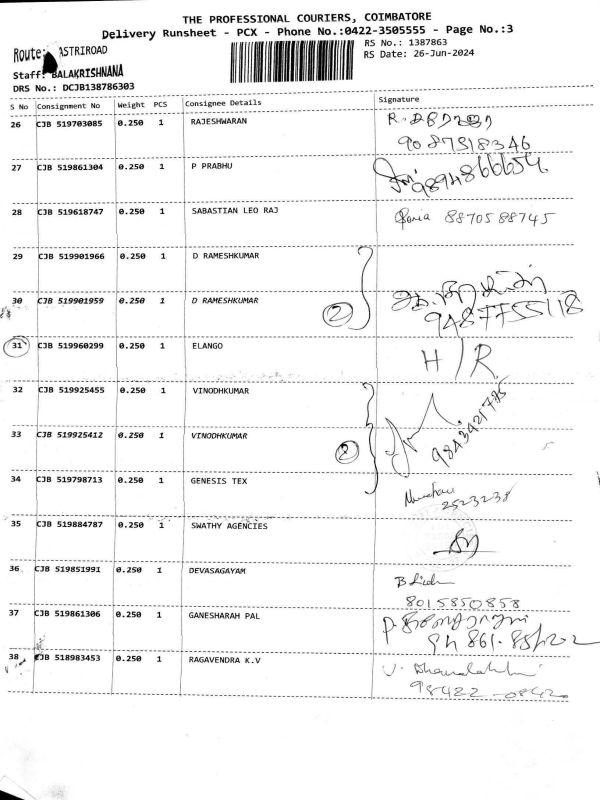 THE PROFESSIONAL COURIERS, COIMBATORE
Delivery Runsheet - PCX - Phone No.:0422-3505555 - Page No.:3
RS No.: 1387863
RS Date: 26-Jun-2024
Route: ASTRIROAD
Staff: BALAKRISHNANA
DRS No.: DCJB138786303
S No Consignment No Weight PCS Consignee Details Signature
26 CJB 519703085 0.250 1 RAJESHWARAN
9087518346
27 CJB 519861304 0.250 1 P PRABHU 9894866654
28 CJB 519618747 0.250 1 SABASTIAN LEO RAJ 8870588745
29 CJB 519901966 0.250 1 D RAMESHKUMAR
30 CJB 519901959 0.250 1 D RAMESHKUMAR 2
31 CJB 519960299 0.250 1 ELANGO H/R
32 CJB 519925455 0.250 1 VINODHKUMAR
33 CJB 519925412 0.250 1 VINODHKUMAR 2
34 CJB 519798713 0.250 1 GENESIS TEX
2523238
35 CJB 519884787 0.250 1 SWATHY AGENCIES
36 CJB 519851991 0.250 1 DEVASAGAYAM
8015850858
37 CJB 519861306 0.250 1 GANESHARAH PAL
38 CJB 518983453 0.250 1 RAGAVENDRA K.V